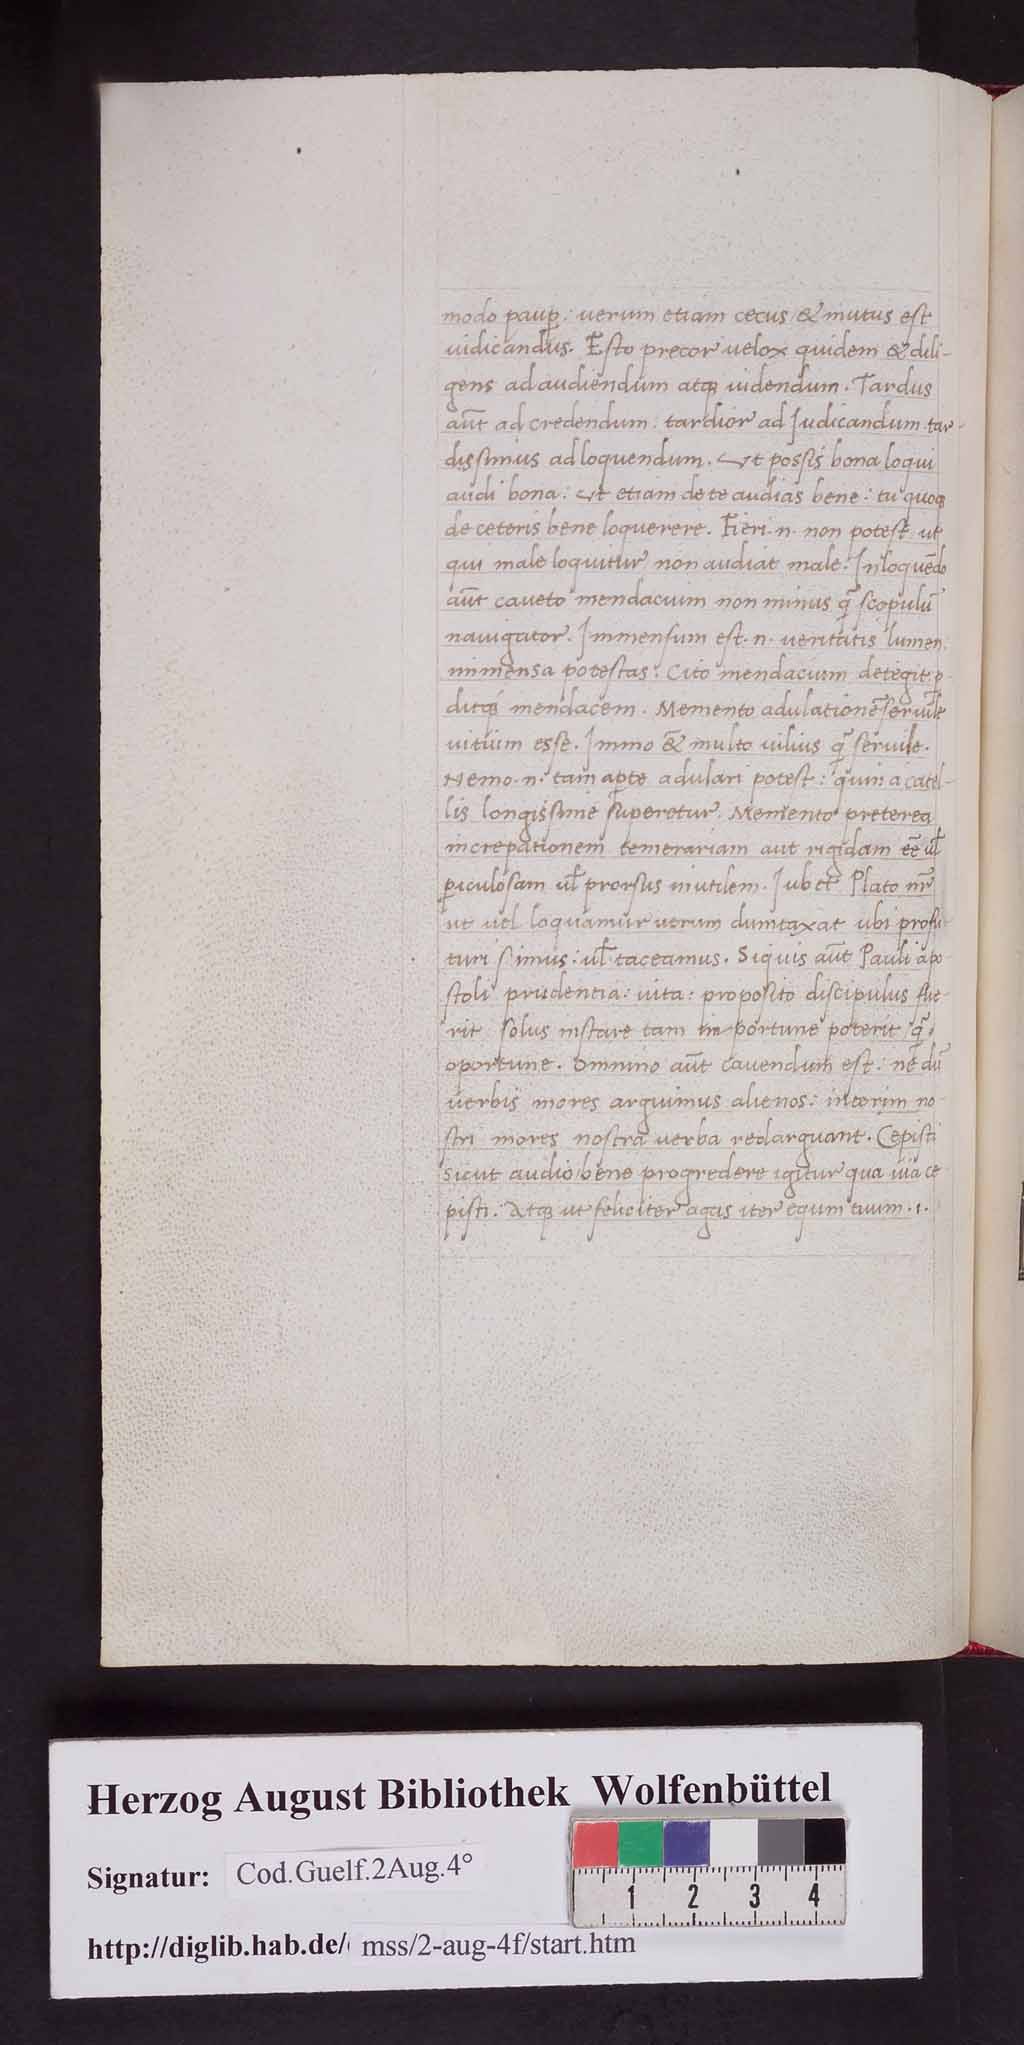 modo paup̱: uerum etiam cecus & mutus est
iudicandus. Esto precor uelox quidem & dili-
gens ad audiendum atqꝫ uidendum. Tardus
aūt ad credendum: tardior ad Judicandum tar-
dissimus ad loquendum. Ut possis bona loqui
audi bona: Ut etiam de te audias bene: tu quoqꝫ
de ceteris bene loquerere. Fieri .n. non potest ut
qui male loquitur non audiat male. In loquēdo
aūt caueto mendacium non minus q̄ scopulū
nauigator. Immensum est .n. ueritatis lumen.
immensa potestas. Cito mendacium detegit: p-
ditqꝫ mendacem. Memento adulationē seruile
uitium esse. Immo & multo uilius q̄ seruile.
Nemo .n. tam apte adulari potest: quin a catel-
lis longissime superetur. Memento preterea
increpationem temerariam aut rigidam eē ul̄
ꝑiculosam ul̄ prorsus inutilem. Jubet Plato nr̄
ut uel loquamur uerum dumtaxat ubi profu-
turi simus: ul̄ taceamus. Siquis aūt Pauli apo-
stoli prudentia: uita: proposito discipulus fue-
rit solus instare tam importune poterit q̄
oportune. Omnino aūt cauendum est: ne dū
uerbis mores arguimus alienos: interim no-
stri mores nostra uerba redarguant. Cepisti
sicut audio bene progredere igitur qua uia ce-
pisti. Atqꝫ ut feliciter agas iter equm tuum .i.
Herzog August Bibliothek Wolfenbüttel
Signatur: Cod.Guelf.2Aug.4°
1 2 3 4
http://diglib.hab.de/ mss/2-aug-4f/start.htm